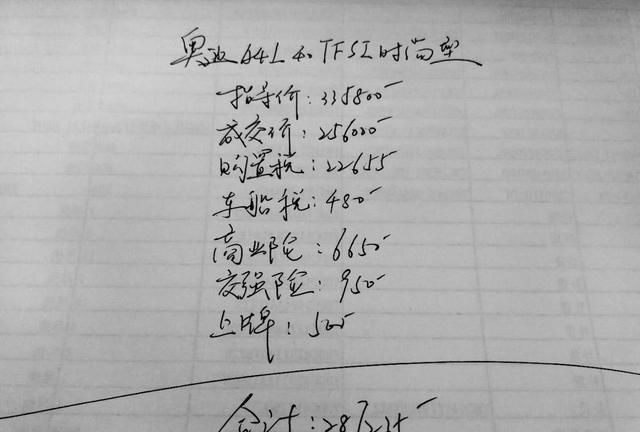 奥迪A4L 40 TFSI时尚型
指导价:335800
成交价:256000
购置税:22655
车船税:480
商业险:6650
交强险:950
上牌:500
合计:287235